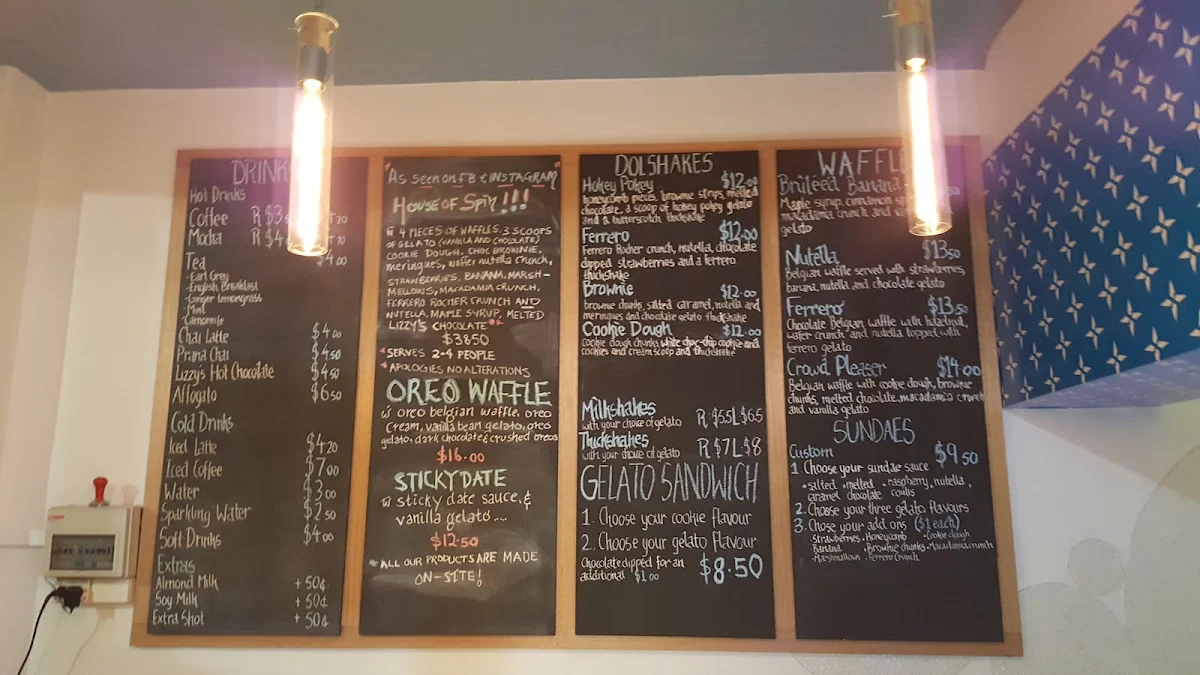 DRINK
Hot Drinks
Coffee R $3 20
Mocha R $4
Tea $4.00
- Earl Grey
- English Breakfast
- Ginger lemongrass
- Mint
- Camomile
Chai Latte $4.00
Prana Chai $4.50
Lizzy's Hot Chocolate $4.50
Affogato $6.50
Cold Drinks
Iced Latte $4.20
Iced Coffee $7.00
Water $3.00
Sparkling Water $2.50
Soft Drinks $4.00
Extras
Almond Milk + 50¢
Soy Milk + 50¢
Extra Shot + 50¢
"AS seen on FB & INSTAGRAM"
HOUSE OF SPIN!!!
w 4 PIECES OF WAFFLES, 3 SCOOPS
OF GELATO (VANILLA AND CHOCOLATE)
COOKIE DOUGH, CHOC BROWNIE,
meringues, wafer nutella crunch,
STRAWBERRIES, BANANA, MARSH-
MELLOWS, MACADAMIA CRUNCH,
FERRERO ROCHER CRUNCH AND
NUTELLA, MAPLE SYRUP, MELTED
LIZZY'S CHOCOLATE
$38.50
*SERVES 2-4 PEOPLE
*APOLOGIES NO ALTERATIONS
OREO WAFFLE
w oreo belgian waffle, oreo
cream, vanilla bean gelato, oreo
gelato, dark chocolate & crushed oreos
$16.00
STICKY DATE
w sticky date sauce, &
vanilla gelato....
$12.50
*ALL OUR PRODUCTS ARE MADE
ON-SITE!
DOLSHAKES
Hokey Pokey $12.00
honeycomb pieces, brownie strips, melted
chocolate, a scoop of hokey pokey gelato
and a butterscotch thickshake
Ferrero $12.00
Ferrero Rocher crunch, nutella, chocolate
dipped strawberries and a ferrero
thickshake
Brownie $12.00
brownie chunks, salted caramel, nutella and
meringues and chocolate gelato thickshake
Cookie Dough $12.00
cookie dough chunks white choc-chip cookie and
cookies and cream scoop and thickshake
Milkshakes R $5.5 L $6.5
with your choice of gelato
Thickshakes R $7 L $8
with your choice of gelato
GELATO SANDWICH
1. Choose your cookie flavour
2. Choose your gelato flavour
Chocolate dipped for an
additional $1.00 $8.50
WAFFLE
Brûleed Banana 50
Maple syrup, cinnamon
macadamia crunch and
gelato
Nutella $13.50
Belgian waffle served with strawberries,
banana, nutella, and chocolate gelato
Ferrero $13.50
Chocolate Belgian waffle with hazelnut,
wafer crunch and nutella topped with
ferrero gelato
Crowd Pleaser $14.00
Belgian waffle with cookie dough, brownie
chunks, melted chocolate, macadamia crunch
and vanilla gelato
SUNDAES
Custom $9.50
1. Choose your sundae sauce
• salted • melted • raspberry, nutella,
caramel chocolate coulis
2. Choose your three gelato flavours
3. Chose your add ons ($1 each)
• Strawberries • Honeycomb • Cookie dough
• Banana • Brownie chunks • Macadamia crunch
• Marshmallows • Ferrero Crunch